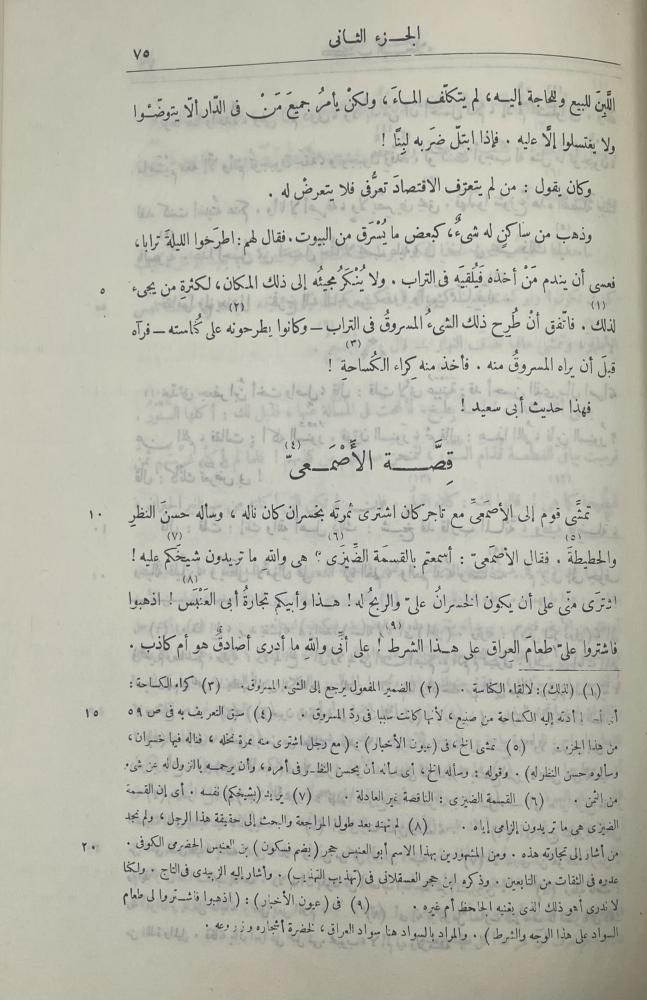 الجزء الثانى
٧٥
اللَّبِنَ للبيع وللحاجة إليه، لم يتكلّف الماءَ، ولكنْ يأمرُ جميعَ مَنْ فى الدّار ألّا يتوضّئوا
ولا يغتسلوا إلّا عليه. فإذا ابتلّ ضربه لبِنًا!
وكان يقول: من لم يتعرّف الاقتصادَ تعرُّفى فلا يتعرضْ له.
وذهب من ساكنٍ له شىءٌ، كبعض ما يُسْرَق من البيوت. فقال لهم: اطرَحوا الليلةَ ترابا،
فعسى أن يندم مَنْ أخذه فيُلقيَه فى التراب. ولا يُنْكَرُ مجيئُه إلى ذلك المكان، لكثرةِ من يجىء ٥
لذلك(١). فاتّفق أنْ طُرِح ذلك الشىءُ المسروقُ فى التراب – وكانوا يطرحونه على كُناسته(٢) – فرآه
قبلَ أن يراه المسروقُ منه. فأخذ منه كِراء الكُساحةِ(٣)!
فهذا حديث أبى سعيد!
قِصَّة الأَصْمَعىّ(٤)
تمشَّى قوم إلى الأصمَعىِّ مع تاجر كان اشترى ثمرتَه بخسران كان ناله، وسأله حسنَ النظرِ ١٠
والحطيطةَ(٥). فقال الأصمَعىّ: أسمعتم بالقسمَة الضِّيزَى(٦)؟ هى واللهِ ما تريدون شيخَكم(٧) عليه!
اشترَى منّى على أن يكون الخسرانُ علىّ والربحُ له! هذا وأبيكم تجارةُ أبى العَنْبَس(٨)! اذهبوا
فاشتروا علىّ طعامَ العِراق على هذا الشرط(٩)! على أنّى واللهِ ما أدرى أصادقٌ هو أم كاذب.
(١) (لذلك): لالقاء الكناسة. (٢) الضمير المفعول يرجع إلى الشىء المسروق. (٣) كراء الكساحة:
أجر ما أدته إليه الكساحة من صنيع، لأنها كانت سببا فى ردّ المسروق. (٤) سبق التعريف به فى ص ٥٩ ١٥
من هذا الجزء. (٥) تمشى الخ، فى (عيون الأخبار): (مع رجل اشترى منه ثمرة نخله، فناله فيها خسران،
وسألوه حسن النظر له). وقوله: وسأله الخ، أى سأله أن يحسن النظر فى أمره، وأن يرحمه بالنزول له عن شىء
من الثمن. (٦) القسمة الضيزى: الناقصة غير العادلة. (٧) يريد (بشيخكم) نفسه. أى إن القسمة
الضيزى هى ما تريدون إلزامى إياه. (٨) لم نهتد بعد طول المراجعة والبحث إلى حقيقة هذا الرجل، ولم نجد
من أشار إلى تجارته هذه. ومن المشهورين بهذا الاسم أبو العنبس حجر (بضم فسكون) بن العنبس الحضرمى الكوفى. ٢٠
عدّه فى الثقات من التابعين. وذكره ابن حجر العسقلانى فى (تهذيب التهذيب). وأشار إليه الزبيدى فى التاج. ولكنّا
لا ندرى أهو ذلك الذى يعنيه الجاحظ أم غيره. (٩) فى (عيون الأخبار): (اذهبوا فاشتروا لى طعام
السواد على هذا الوجه والشرط). والمراد بالسواد هنا سواد العراق، لخضرة أشجاره وزروعه.